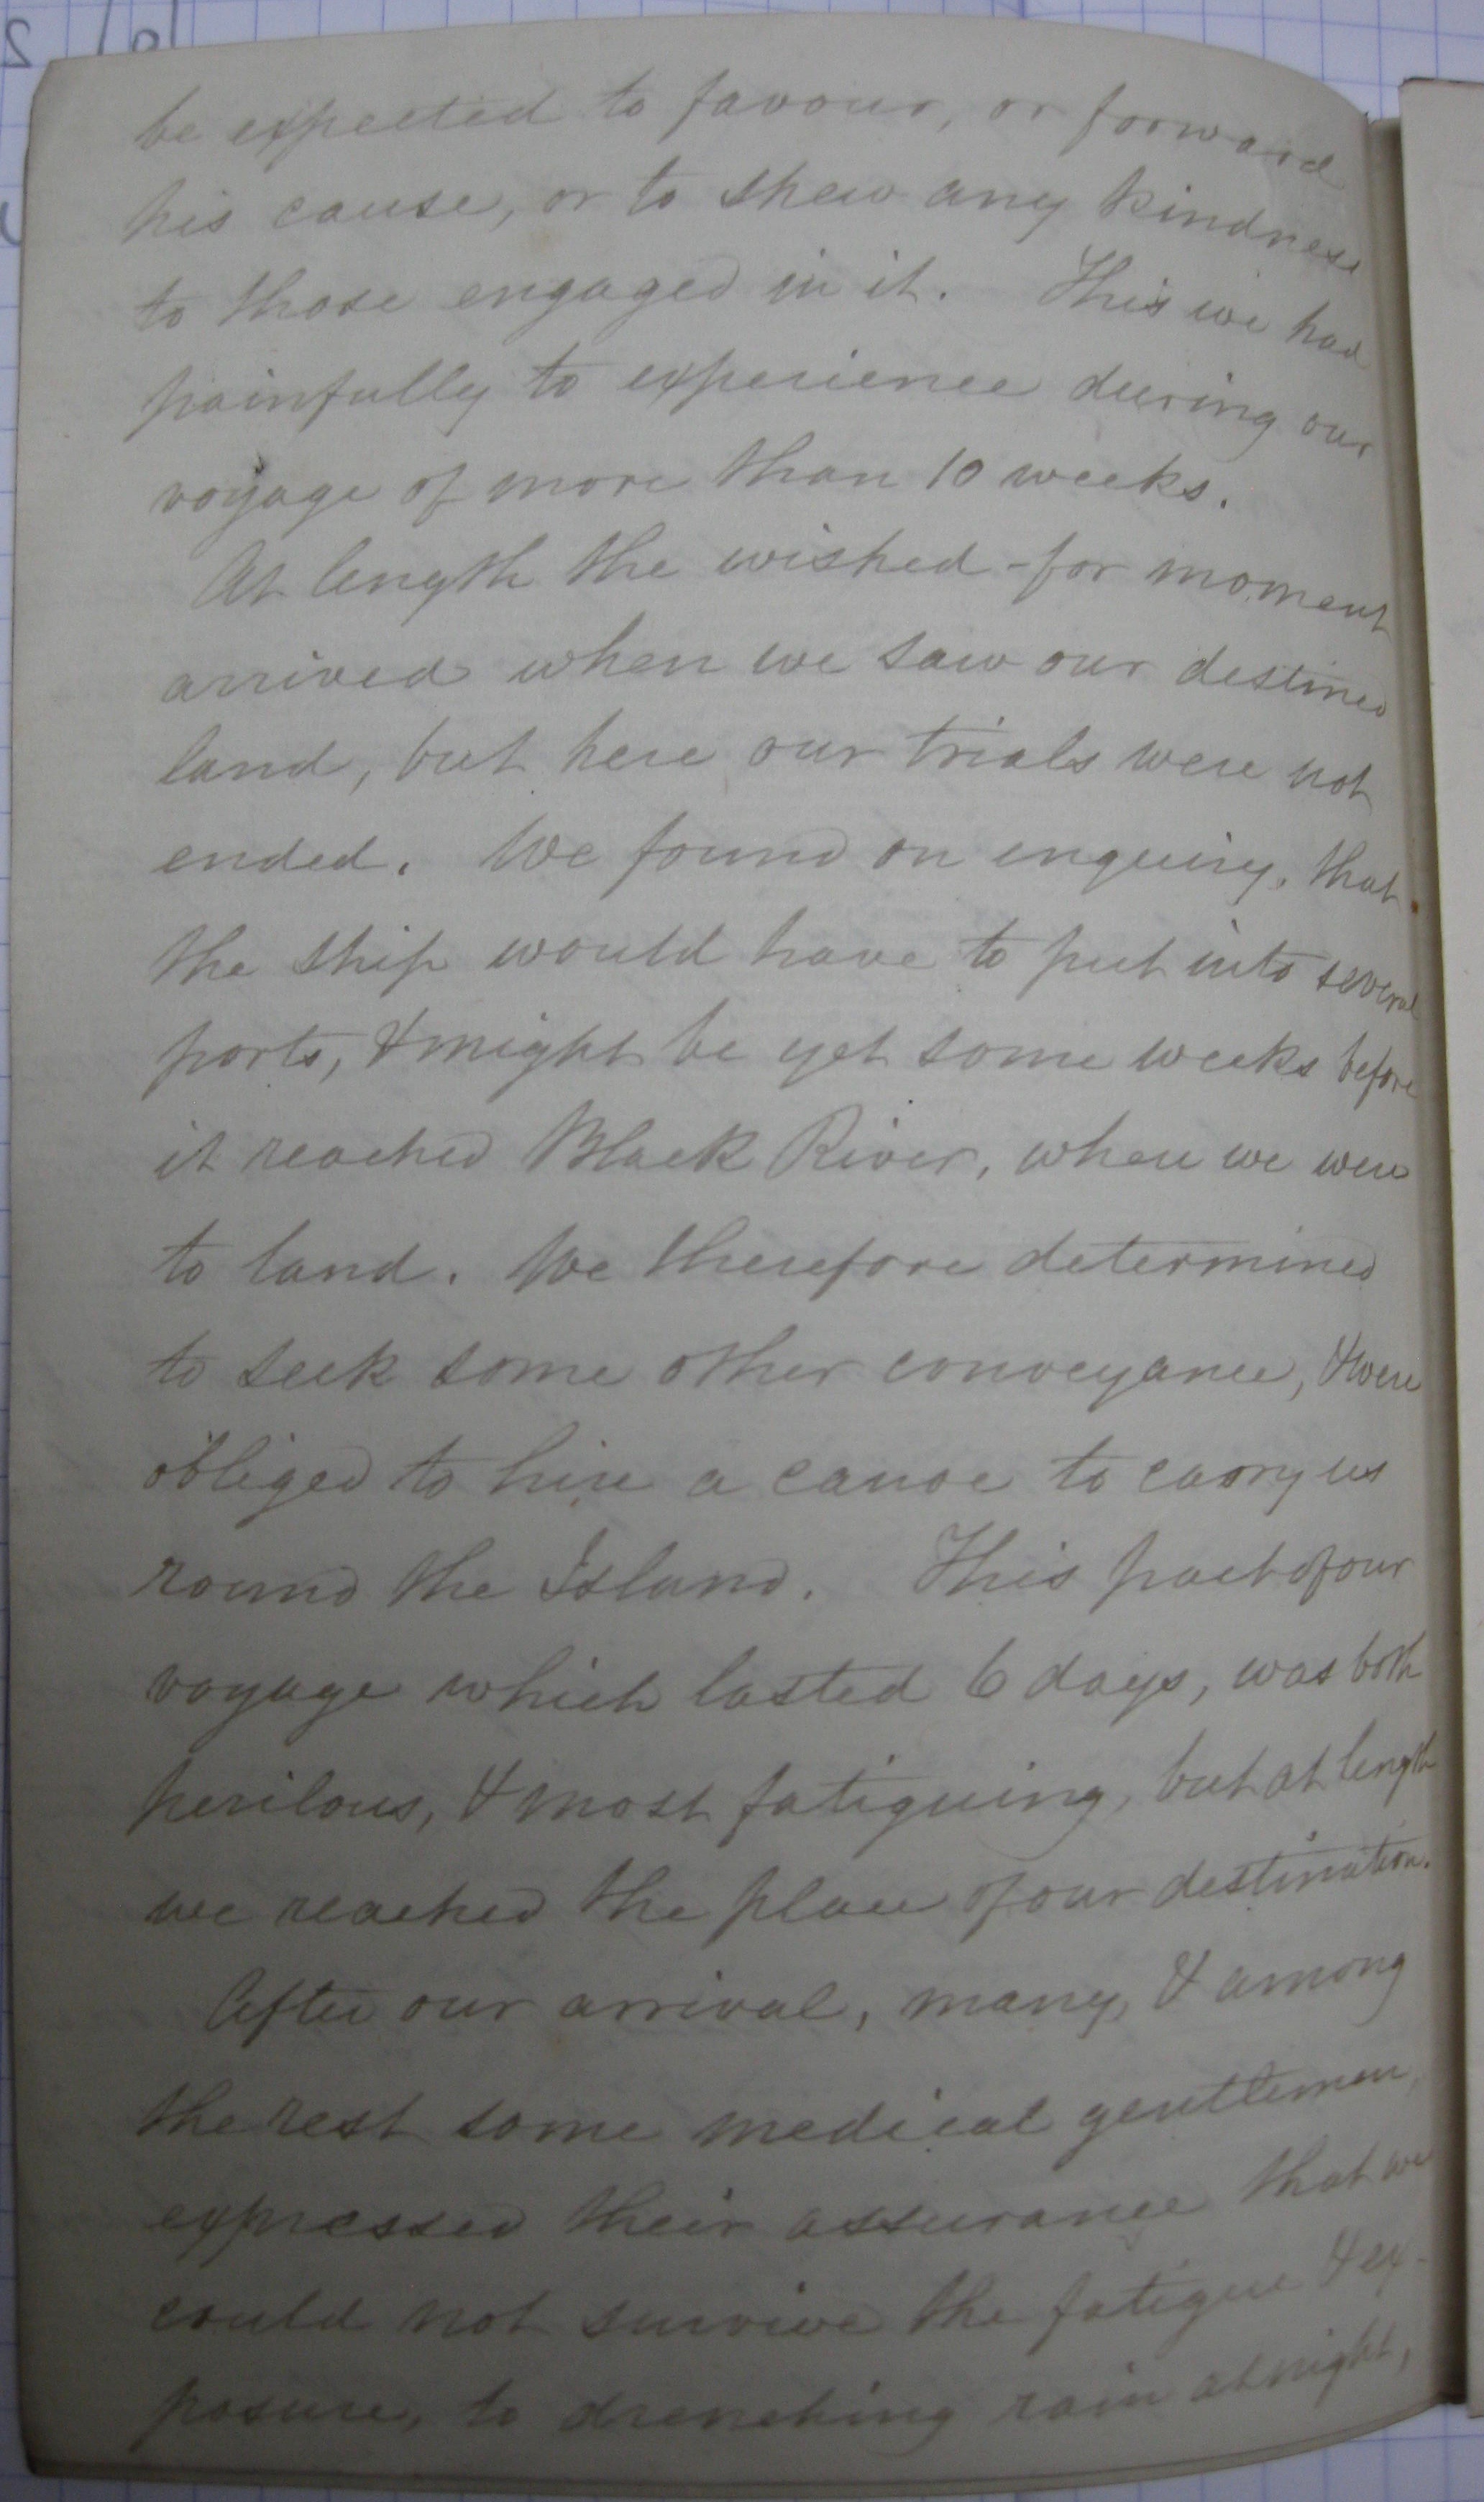 be expected to favour, or forward
his cause, or to shew any kindness
to those engaged in it. This we had
painfully to experience during our
voyage of more than 10 weeks.
At length the wished-for moment
arrived when we saw our destined
land, but here our trials were not
ended. We found on enquiry, that
the ship would have to put into several
ports, & might be yet some weeks before
it reached Black River, where we were
to land. We therefore determined
to seek some other conveyance, & were
obliged to hire a canoe to carry us
round the Island. This part of our
voyage which lasted 6 days, was both
perilous, & most fatiguing, but at length
we reached the place of our destination.
After our arrival, many, & among
the rest some medical gentlemen,
expressed their assurance that we
could not survive the fatigue & ex-
posure, to drenching rain at night,